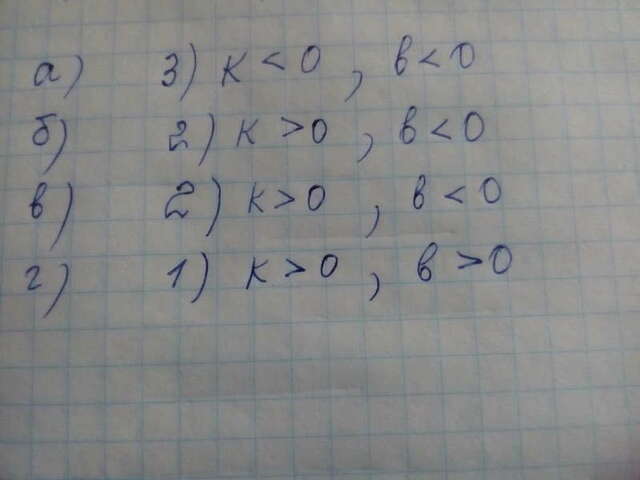 а) 3) к < 0 , в < 0
б) 2) к > 0 , в < 0
в) 2) к > 0 , в < 0
г) 1) к > 0 , в > 0